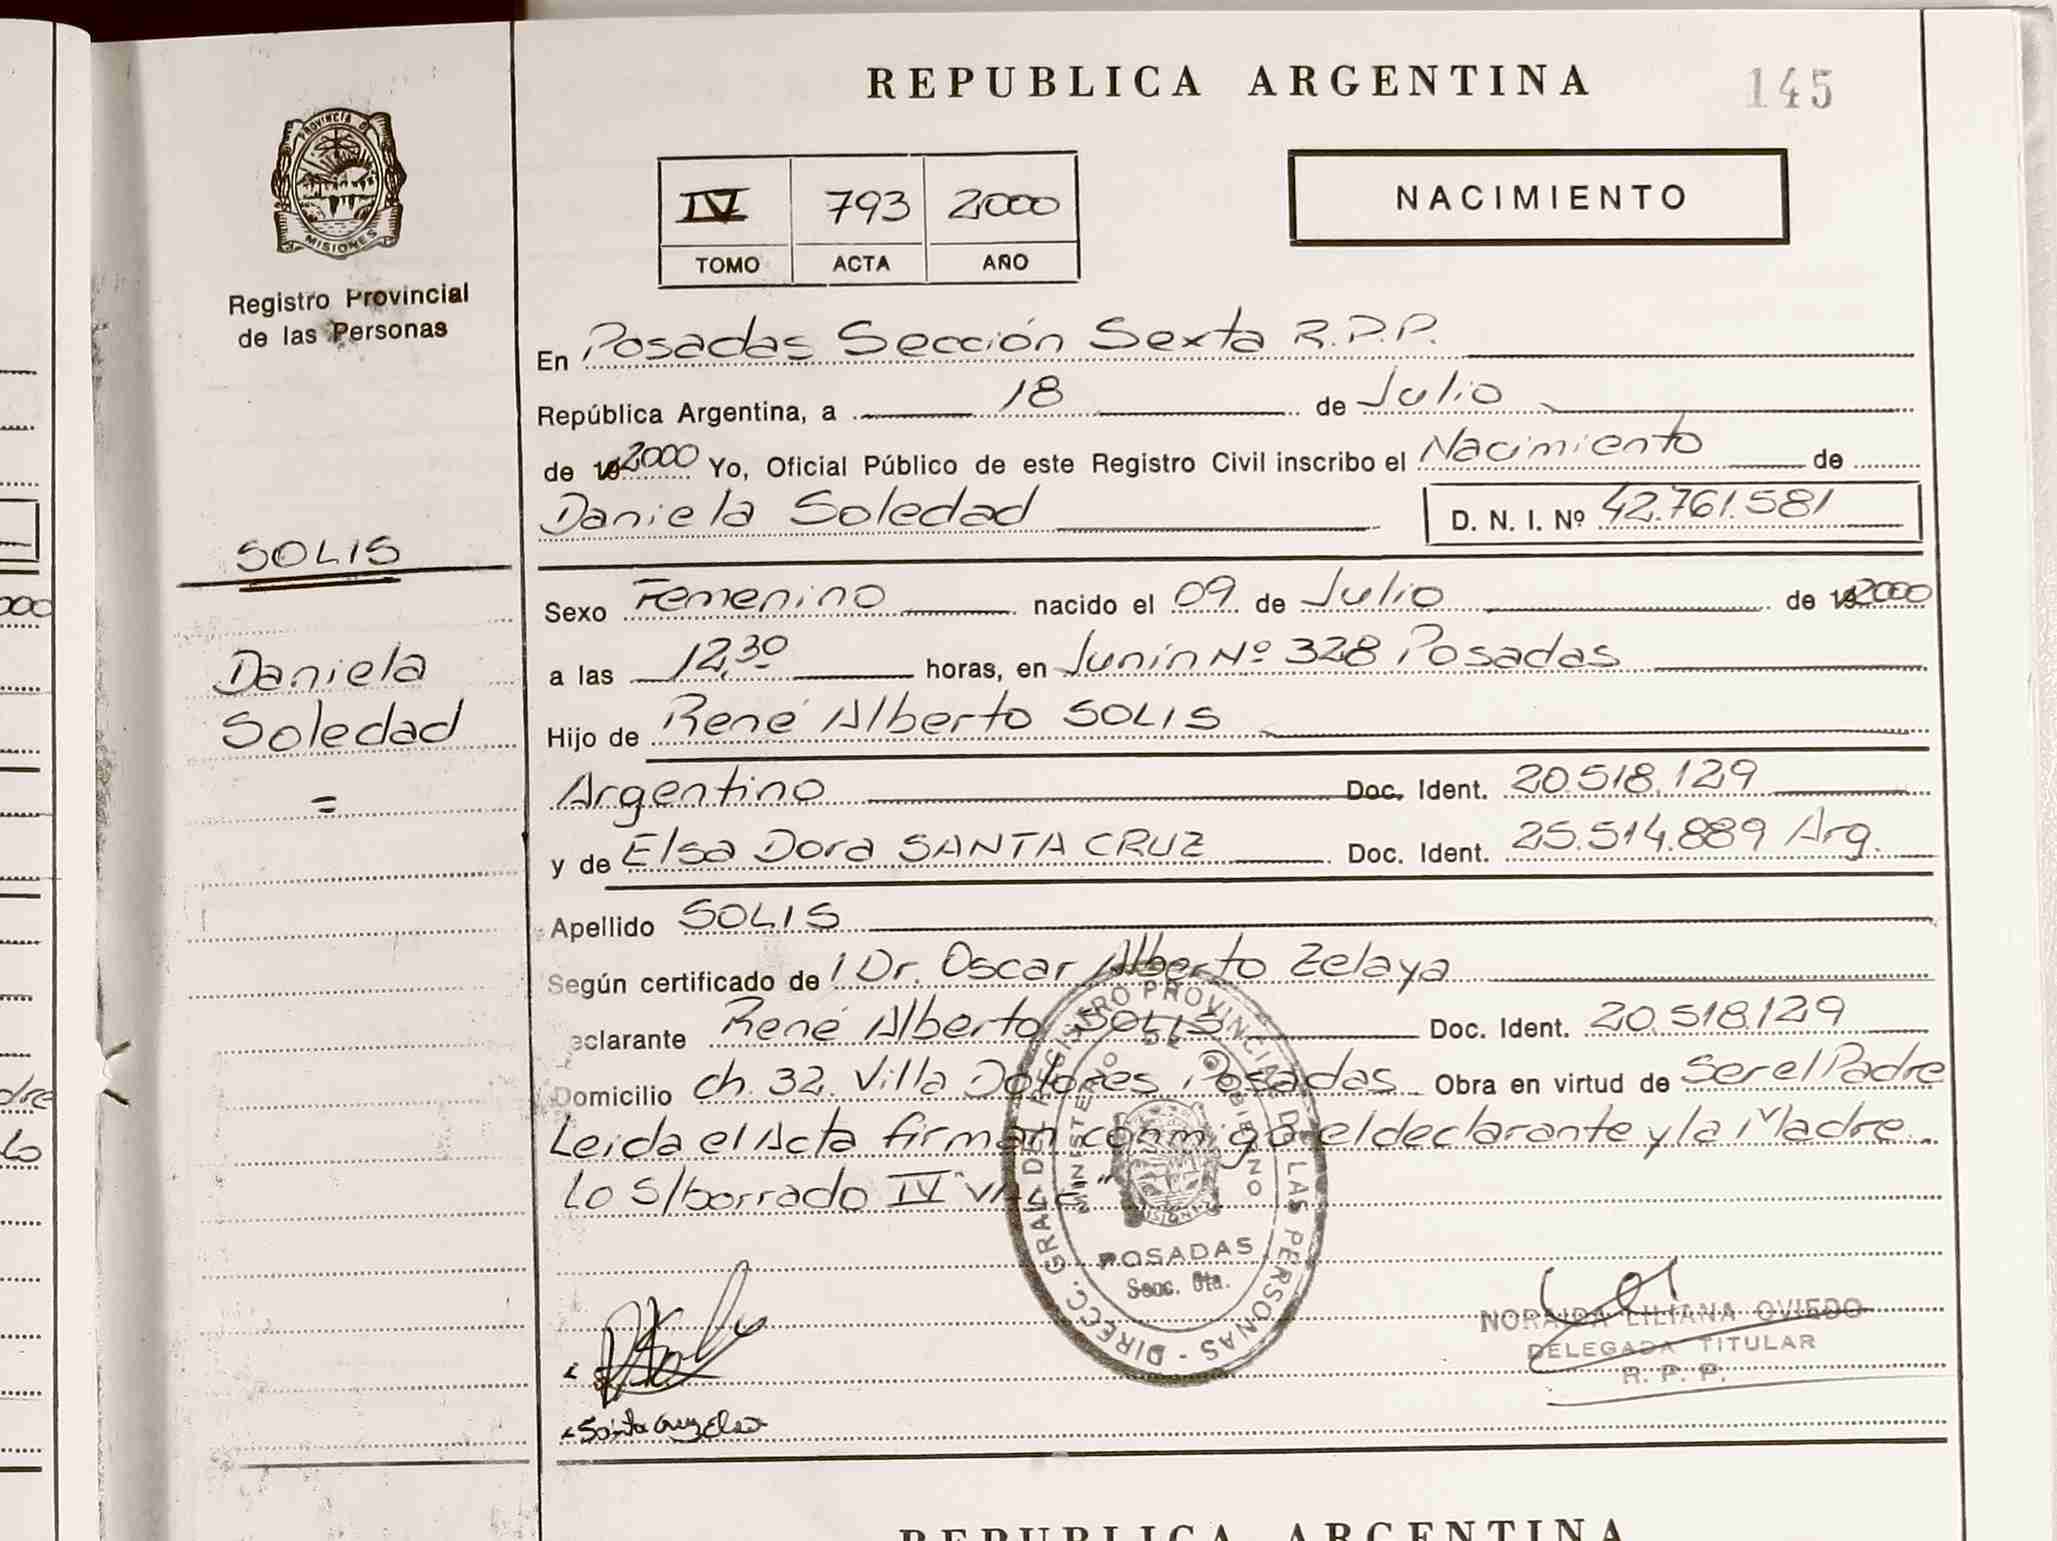 REPUBLICA ARGENTINA
145
PROVINCIA DE
MISIONES
Registro Provincial
de las Personas
IV 793 2000
TOMO ACTA AÑO
NACIMIENTO
En Posadas Sección Sexta R.P.P.
República Argentina, a 18 de Julio
de 19 2000 Yo, Oficial Público de este Registro Civil inscribo el Nacimiento de
Daniela Soledad D. N. I. Nº 42.761.581
SOLIS
Sexo Femenino nacido el 09 de Julio de 19 2000
Daniela
Soledad
=
a las 12,30 horas, en Junín Nº 328 Posadas
Hijo de René Alberto SOLIS
Argentino Doc. Ident. 20.518.129
y de Elsa Dora SANTA CRUZ Doc. Ident. 25.514.889 Arg.
Apellido SOLIS
Según certificado de l Dr. Oscar Alberto Zelaya
eclarante René Alberto SOLIS Doc. Ident. 20.518.129
Domicilio ch. 32. Villa Dolores Posadas Obra en virtud de Ser el Padre
Leida el Acta firman conmigo el declarante y la Madre
Lo S/borrado IV "VALE"
DIRECC. GRAL. DEL REGISTRO PROVINCIAL DE LAS PERSONAS -
MINISTERIO DE GOBIERNO
MISIONES
POSADAS
Secc. 6ta.
NORAIDA LILIANA OVIEDO
DELEGADA TITULAR
R. P. P.
Santa Cruz Elsa
000
dre
lo
REPUBLICA ARGENTINA